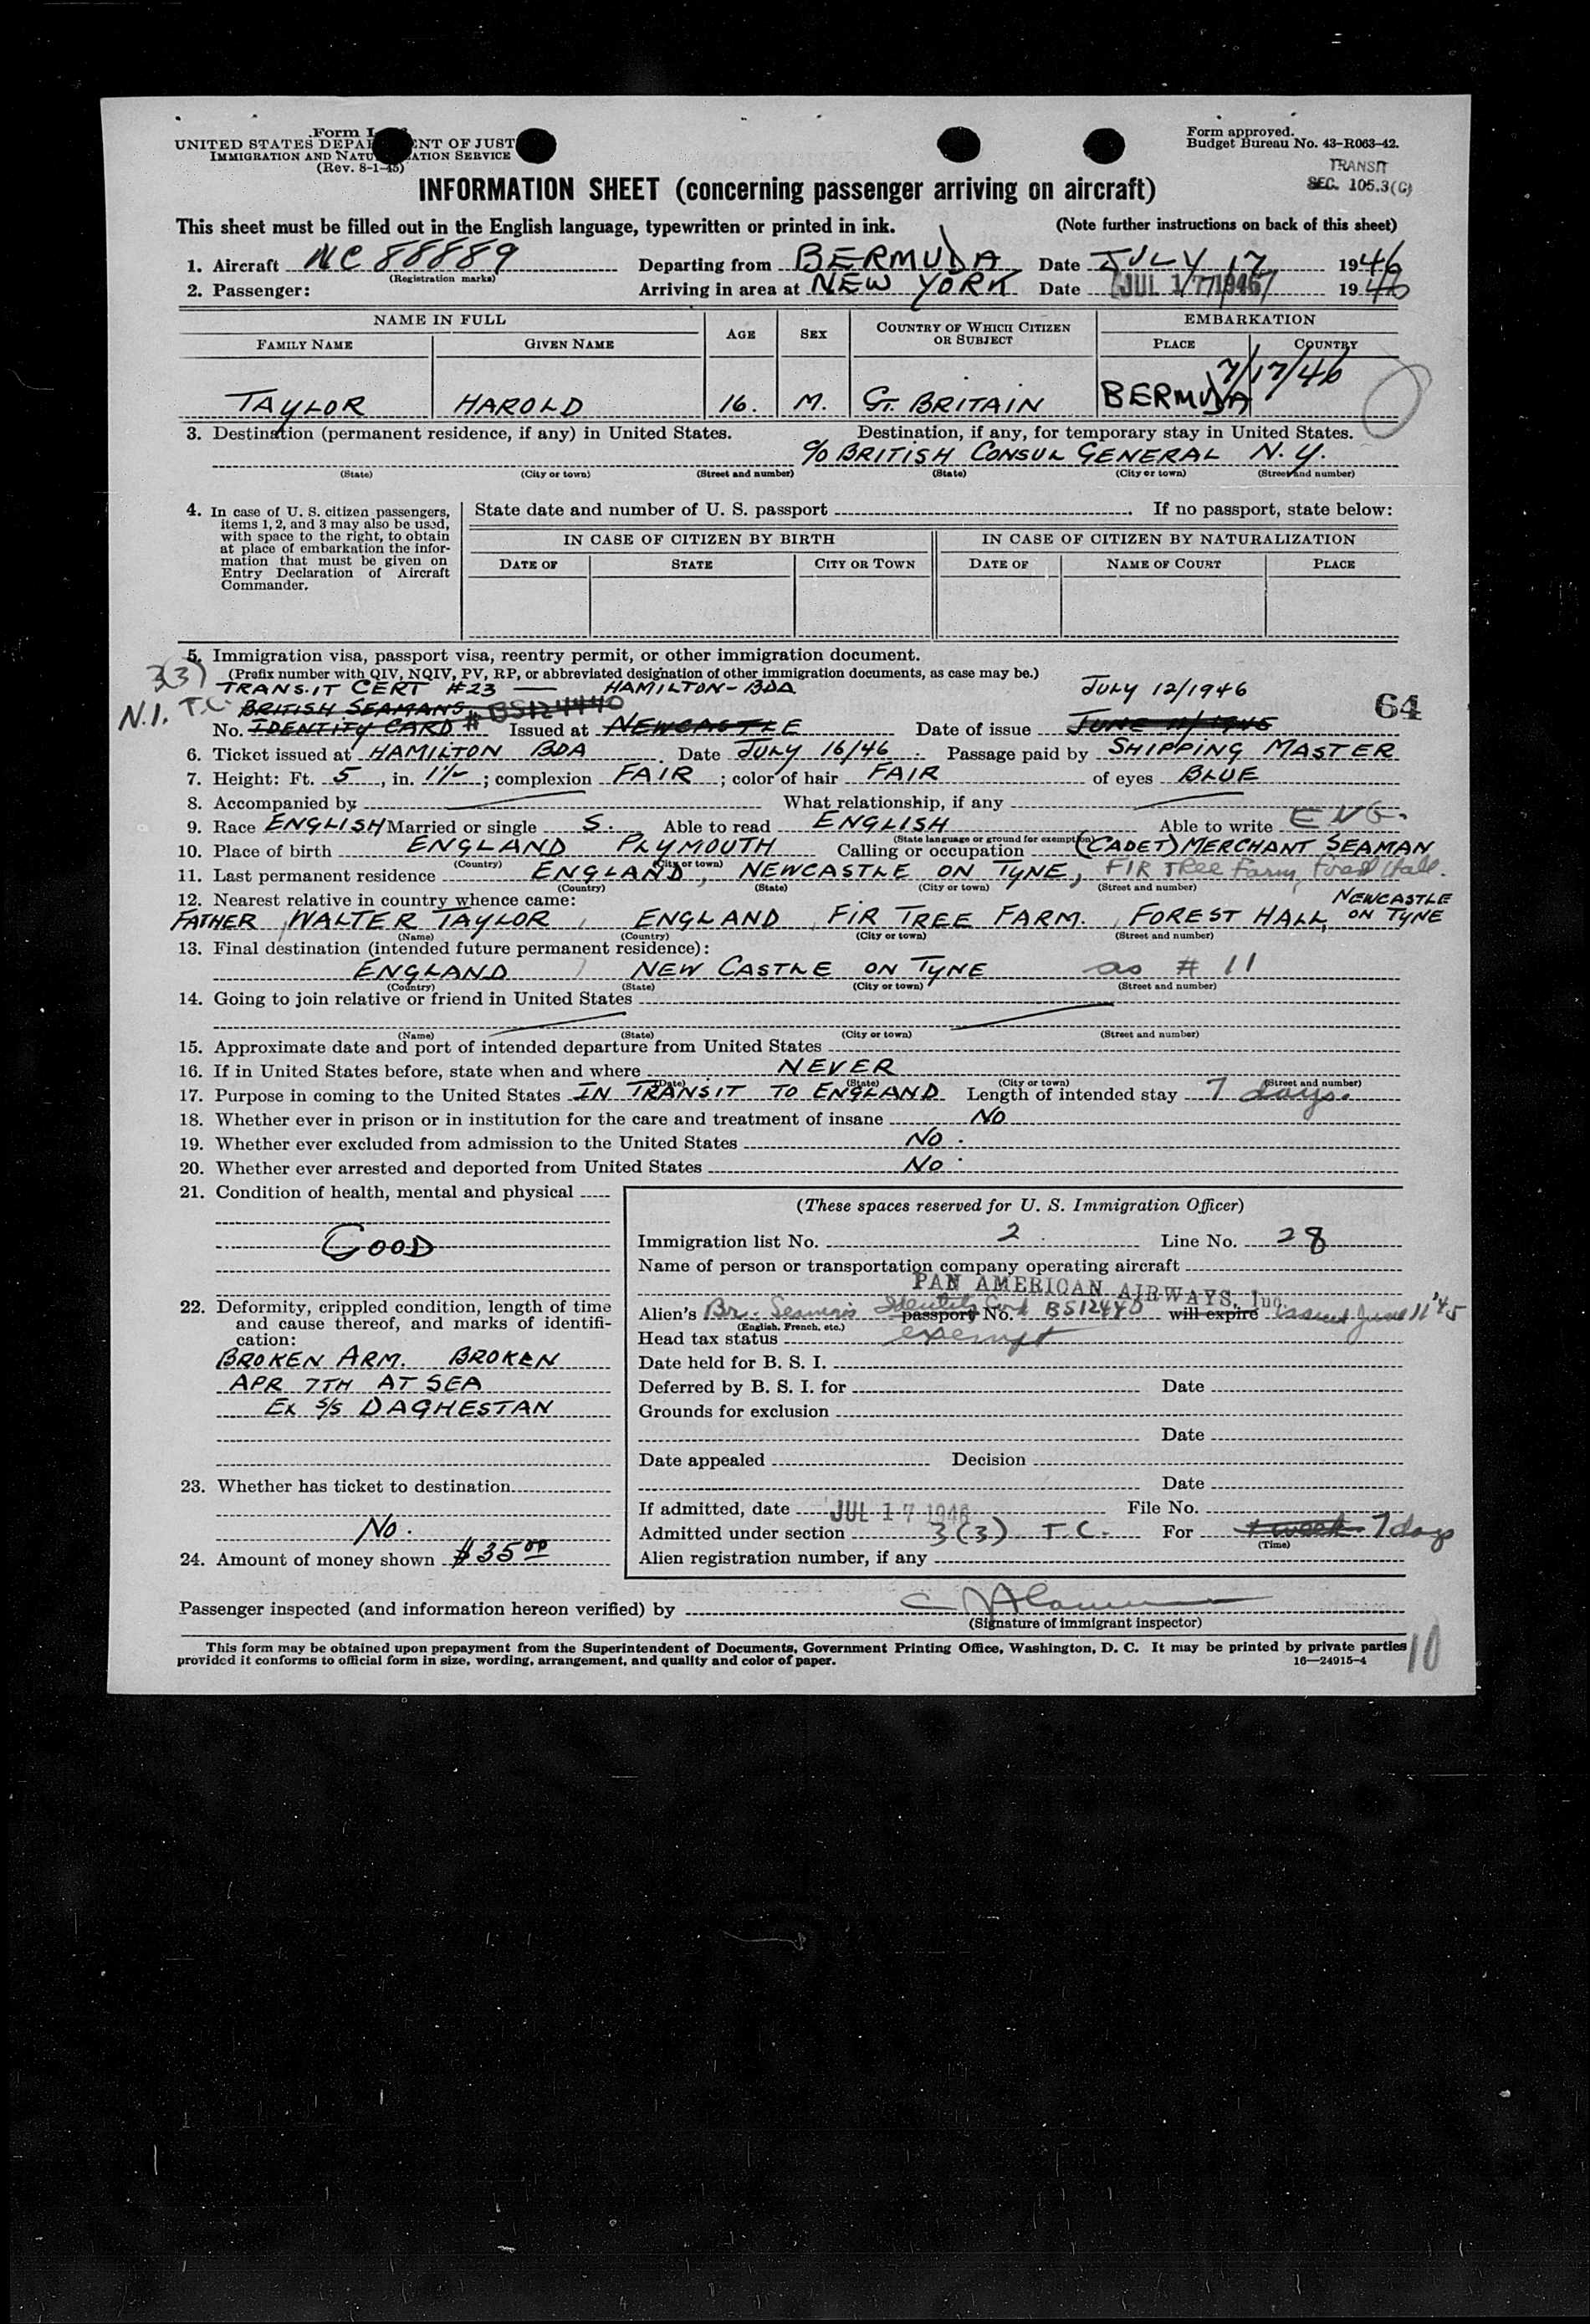 Form I
UNITED STATES DEPA NT OF JUST
IMMIGRATION AND NATU ATION SERVICE
(Rev. 8-1-45)
Form approved.
Budget Bureau No. 43-R063-42.
TRANSIT
SEC. 105.3(C)
INFORMATION SHEET (concerning passenger arriving on aircraft)
This sheet must be filled out in the English language, typewritten or printed in ink. (Note further instructions on back of this sheet)
1. Aircraft NC 88889 Departing from BERMUDA Date JULY 17 1946
(Registration marks)
2. Passenger: Arriving in area at NEW YORK Date JUL 17 1946 1946
NAME IN FULL AGE SEX COUNTRY OF WHICH CITIZEN OR SUBJECT EMBARKATION
FAMILY NAME GIVEN NAME PLACE COUNTRY
7/17/46
TAYLOR HAROLD 16. M. GT. BRITAIN BERMUDA
3. Destination (permanent residence, if any) in United States. Destination, if any, for temporary stay in United States.
C/O BRITISH CONSUL GENERAL N.Y.
(State) (City or town) (Street and number) (State) (City or town) (Street and number)
4. In case of U. S. citizen passengers, items 1, 2, and 3 may also be used, with space to the right, to obtain at place of embarkation the information that must be given on Entry Declaration of Aircraft Commander.
State date and number of U. S. passport . If no passport, state below:
IN CASE OF CITIZEN BY BIRTH IN CASE OF CITIZEN BY NATURALIZATION
DATE OF STATE CITY OR TOWN DATE OF NAME OF COURT PLACE
5. Immigration visa, passport visa, reentry permit, or other immigration document.
(Prefix number with QIV, NQIV, PV, RP, or abbreviated designation of other immigration documents, as case may be.)
3(3) TRANSIT CERT #23 — HAMILTON-BDA JULY 12/1946
64
N.I. T.C. BRITISH SEAMANS
No. IDENTITY CARD # BS124440 Issued at NEWCASTLE Date of issue JUNE 11/1945
6. Ticket issued at HAMILTON BDA. Date JULY 16/46. Passage paid by SHIPPING MASTER
7. Height: Ft. 5, in. 1½; complexion FAIR; color of hair FAIR of eyes BLUE
8. Accompanied by What relationship, if any
9. Race ENGLISH Married or single S. Able to read ENGLISH Able to write ENG.
(State language or ground for exemption)
10. Place of birth ENGLAND PLYMOUTH Calling or occupation (CADET) MERCHANT SEAMAN
(Country) (City or town)
11. Last permanent residence ENGLAND, NEWCASTLE ON TYNE, FIR Tree Farm, Forest Hall.
(Country) (State) (City or town) (Street and number)
12. Nearest relative in country whence came:
FATHER, WALTER TAYLOR, ENGLAND, FIR TREE FARM. FOREST HALL, NEWCASTLE ON TYNE
(Name) (Country) (City or town) (Street and number)
13. Final destination (intended future permanent residence):
ENGLAND, NEW CASTLE ON TYNE as # 11
(Country) (State) (City or town) (Street and number)
14. Going to join relative or friend in United States
(Name) (State) (City or town) (Street and number)
15. Approximate date and port of intended departure from United States
16. If in United States before, state when and where NEVER
(Date) (State) (City or town) (Street and number)
17. Purpose in coming to the United States IN TRANSIT TO ENGLAND Length of intended stay 7 days.
18. Whether ever in prison or in institution for the care and treatment of insane NO
19. Whether ever excluded from admission to the United States NO.
20. Whether ever arrested and deported from United States NO.
21. Condition of health, mental and physical
GOOD
22. Deformity, crippled condition, length of time and cause thereof, and marks of identification:
BROKEN ARM. BROKEN
APR 7TH AT SEA
EX S/S DAGHESTAN
23. Whether has ticket to destination
NO.
24. Amount of money shown $35.00
(These spaces reserved for U. S. Immigration Officer)
Immigration list No. 2 Line No. 28
Name of person or transportation company operating aircraft
PAN AMERICAN AIRWAYS, Inc.
Alien's Br. Seaman's Identity Card passport No. BS12440 will expire issued June 11 '45
(English, French, etc.)
Head tax status exempt
Date held for B. S. I.
Deferred by B. S. I. for Date
Grounds for exclusion
Date
Date appealed Decision
Date
If admitted, date JUL 17 1946 File No.
Admitted under section 3(3) T C. For 1 week 7 days
(Time)
Alien registration number, if any
Passenger inspected (and information hereon verified) by
(Signature of immigrant inspector)
This form may be obtained upon prepayment from the Superintendent of Documents, Government Printing Office, Washington, D. C. It may be printed by private parties
provided it conforms to official form in size, wording, arrangement, and quality and color of paper. 16—24915-4
10